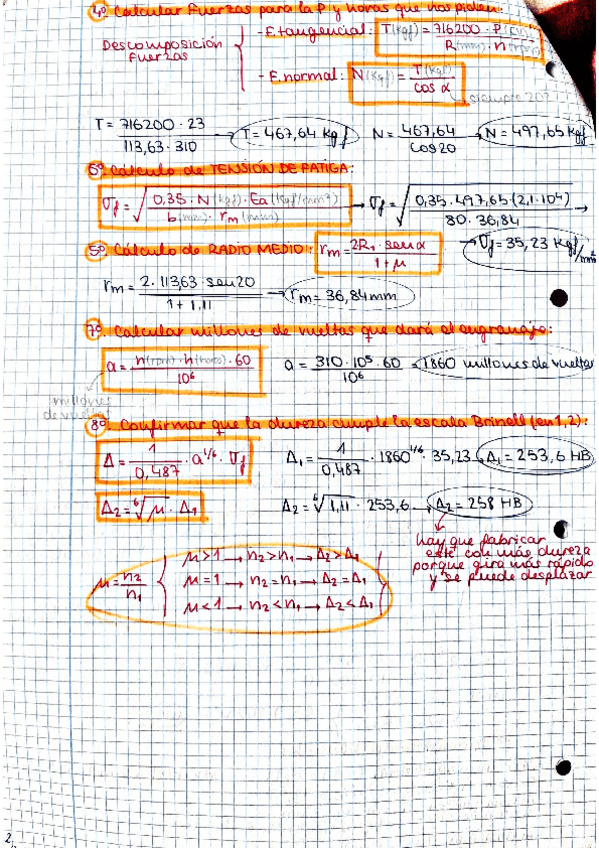 4º. Calcular Fuerzas para la P y horas que nos piden:
Descomposición Fuerzas
- F. tangencial: T(kgf) = 716200 · P(CV) / R(mm) · n(rpm)
- F. normal: N(kgf) = T(kgf) / cos α
siempre 20º
T = 716200 · 23 / 113,63 · 310 → T = 467,64 Kgf
N = 467,64 / cos 20 → N = 497,65 Kgf
6º. Cálculo de TENSIÓN DE FATIGA:
σf = √(0,35 · N(kgf) · Ea(kgf/mm²) / b(mm) · rm(mm)) → σf = √(0,35 · 497,65 (2,1·10⁴) / 80 · 36,84) →
→ σf = 35,23 Kgf/mm²
5º. Cálculo de RADIO MEDIO: rm = 2R₁ · sen α / 1 + μ
rm = 2 · 113,63 · sen 20 / 1 + 1,11 → rm = 36,84 mm
7º. Calcular millones de vueltas que dará el engranaje:
a = n(rpm) · h(horas) · 60 / 10⁶
a = 310 · 10⁵ · 60 / 10⁶ = 1860 millones de vueltas
millones de vueltas
8º. Confirmar que la dureza cumple la escala Brinell (en 1, 2):
Δ = 1 / 0,487 · a^1/6 · σf
Δ₁ = 1 / 0,487 · 1860^1/6 · 35,23 → Δ₁ = 253,6 HB
Δ₂ = ⁶√μ · Δ₁
Δ₂ = ⁶√1,11 · 253,6 → Δ₂ = 258 HB
hay que fabricar
este con más dureza
porque gira más rápido
y se puede desplazar
μ = n₂ / n₁
μ > 1 → n₂ > n₁ → Δ₂ > Δ₁
μ = 1 → n₂ = n₁ → Δ₂ = Δ₁
μ < 1 → n₂ < n₁ → Δ₂ < Δ₁
2